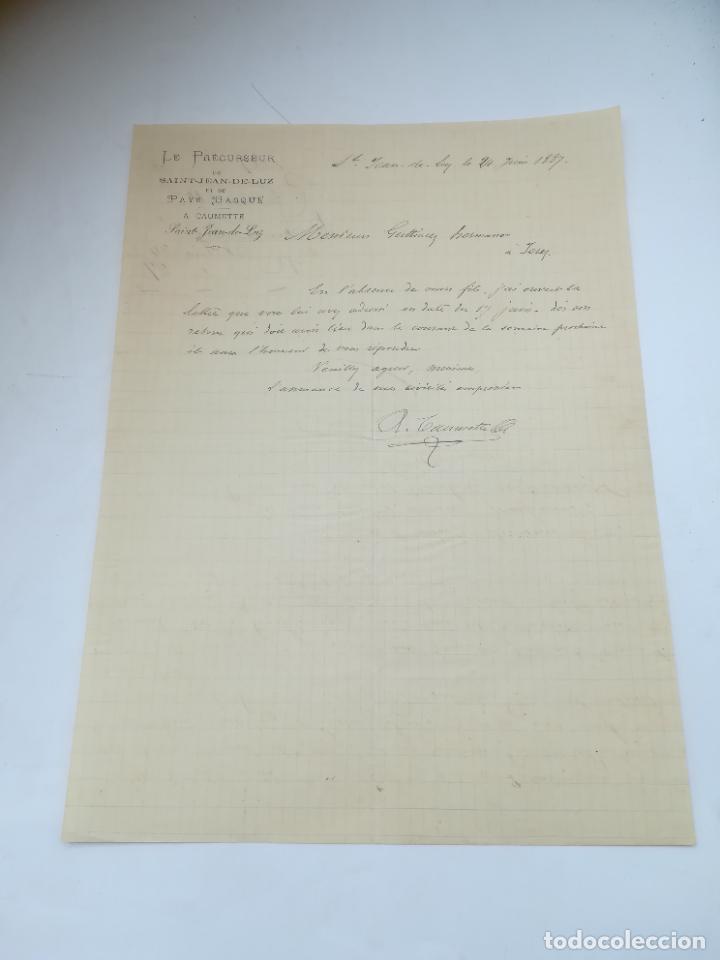 LE PRÉCURSEUR
DE
SAINT-JEAN-DE-LUZ
ET DU
PAYS BASQUE
A CAUMETTE
Saint-Jean-de-Luz
St Jean-de-Luz le 24 Juin 1887.
Messieurs Guttierez hermanos
à Jerez
En l'absence de mon fils, j'ai ouvert la
lettre que vous lui avez adressé en date du 17 juin. dès son
retour qui doit avoir lieu dans le courant de la semaine prochaine
il aura l'honneur de vous répondre
Veuillez agréer, messieurs
l'assurance de mes civilités empressées
A. Caumette
todocoleccion
todocoleccion.net